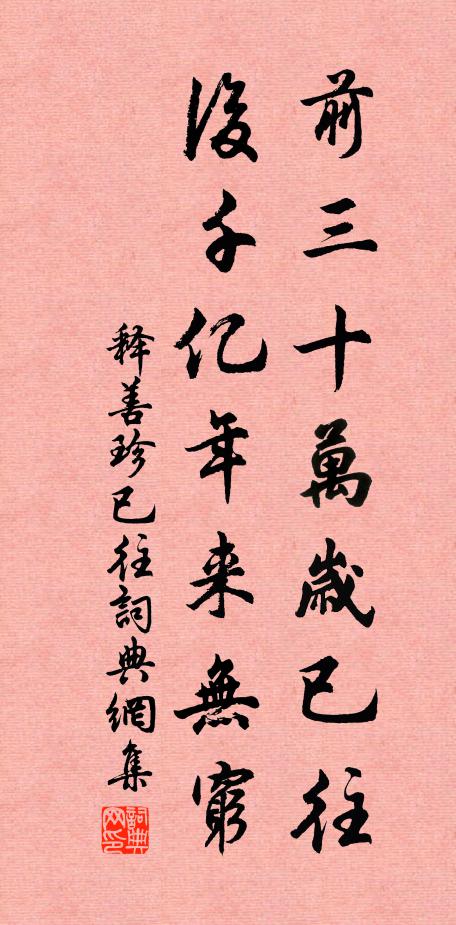 前三十萬歲已往
後千亿年来無窮
释善珍已往詞典網集
詞典网印